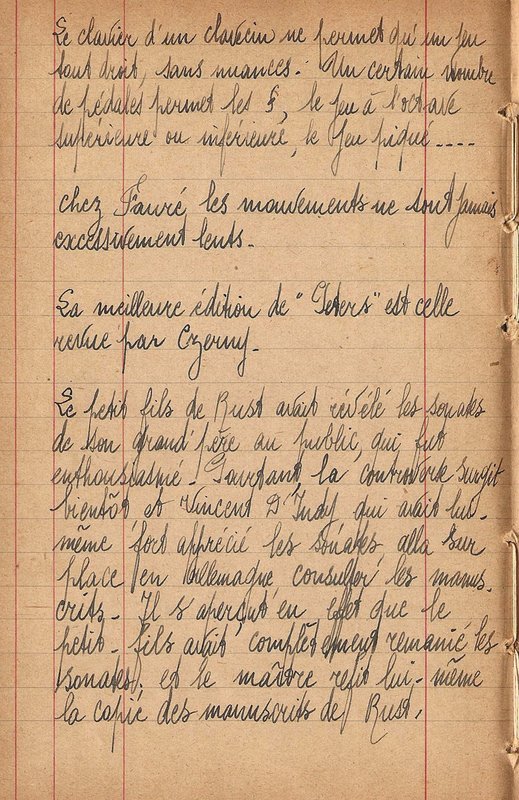 Le clavier d'un clavecin ne permet qu'un jeu
tout droit, sans nuances. Un certain nombre
de pédales permet les f, le jeu à l'octave
supérieure ou inférieure, le jeu piqué....
chez Fauré, les mouvements ne sont jamais
excessivement lents.
La meilleure édition de "Peters" est celle
revue par Czerny.
Le petit fils de Rust avait révélé les sonates
de son grand'père au public, qui fut
enthousiasmé. Pourtant, la controverse surgit
bientôt et Vincent D'Indy, qui avait lui-
même fort apprécié les sonates, alla sur
place en Allemagne consulter les manus-
crits. Il s'aperçut en effet que le
petit-fils avait complètement remanié les
sonates, et le maître refit lui-même
la copie des manuscrits de Rust.